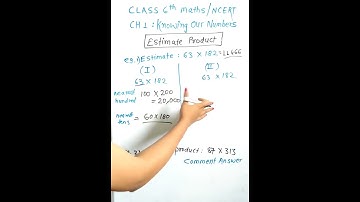 CLASS 6th maths/NCERT
CH 1 : Knowing Our Numbers
Estimate Product
eg. 1) Estimate : 63 X 182 = 11466
(I)
(II)
63 X 182
63 X 182
nearest hundred
100 X 200
= 20,000
nearest tens
= 60X180
product : 87 X 313
Comment Answer